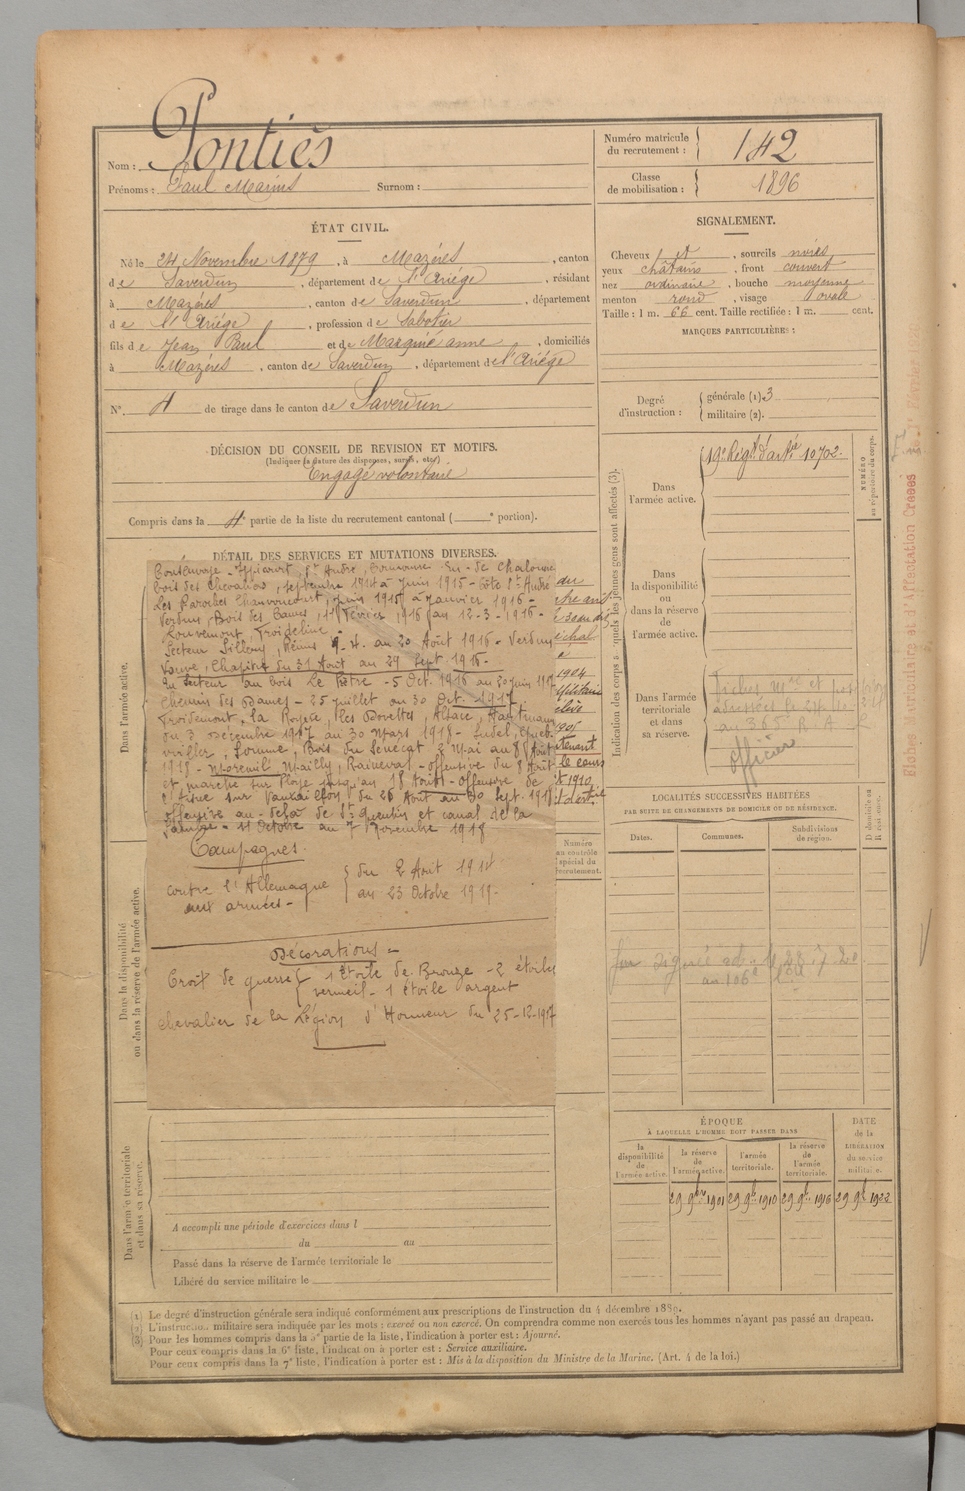 Nom : Pontiès
Prénoms : Paul Marius Surnom :
Numéro matricule du recrutement : 142
Classe de mobilisation : 1896
ÉTAT CIVIL.
Né le 24 Novembre 1879, à Mazéres, canton
de Saverdun, département de l'Ariége, résidant
à Mazéres, canton de Saverdun, département
de l'Ariége, profession de Sabotier
fils de Jean Paul et de Marquié anne, domiciliés
à Mazéres, canton de Saverdun, département de l'Ariége
N°. 4 de tirage dans le canton de Saverdun
SIGNALEMENT.
Cheveux et, sourcils noirs
yeux châtains, front couvert
nez ordinaire, bouche moyenne
menton rond, visage ovale
Taille : 1 m. 66 cent. Taille rectifiée : 1 m. cent.
MARQUES PARTICULIÈRES :
Degré d'instruction : générale (1) 3
militaire (2).
DÉCISION DU CONSEIL DE REVISION ET MOTIFS.
(Indiquer la nature des dispenses, sursis, etc.)
Engagé volontaire
Compris dans la 4e partie de la liste du recrutement cantonal ( e portion).
DÉTAIL DES SERVICES ET MUTATIONS DIVERSES.
St André, En - de Chalonnes
bois des Chevaliers, septembre 1914 à Juin 1915 - Côte St André
Les Paroches Chauvoncourt, Juin 1915 à Janvier 1916 -
Verdun, Bois des Caures, 11 Février 1916 au 12-3-1916 -
Louvemont, Froideterre -
Secteur Sillery, Reims 9-4- au 20 Août 1916 - Verdun
Vaux, Chapitre du 31 Août au 29 Sept 1916 -
Secteur au bois Le Prêtre - 5 Oct. 1916 au 20 Juin 1917
Chemin des Dames - 25 juillet au 30 Oct. 1917
Froidemont, la Royère, les Bovettes, Alsace, Hartmann
du 3 Décembre 1917 au 30 Mars 1918 - Sudel, Gueb-
willer, Somme, Bois du Sénécat 2 Mai au 8 Août
1918 - Moreuil, Mailly, Raineval - offensive du 8 Août
et marche sur Roye jusqu'au 18 Août - offensive de
l'Aisne sur Vauxaillon du 26 Août au 30 Sept. 1918
offensive au-delà de St Quentin et canal de la
Sambre - 11 Octobre au 7 Novembre 1918
Campagnes.
contre l'Allemagne
aux armées -
du 2 Août 1914
au 23 Octobre 1919 -
Décorations -
Croix de guerre 1 étoile de Bronze - 2 étoiles
vermeil - 1 étoile argent
Chevalier de la Légion d'Honneur du 25-12-1917
Dans l'armée active.
Dans la disponibilité
ou dans la réserve de l'armée active.
Dans l'armée territoriale
et dans sa réserve.
Numéro
au contrôle
spécial du
recrutement.
A accompli une période d'exercices dans l
du au
Passé dans la réserve de l'armée territoriale le
Libéré du service militaire le
Indication des corps auxquels les jeunes gens sont affectés (3).
NUMÉRO
au répertoire du corps.
Dans
l'armée active.
19e Régt d'artie 10702.
Dans
la disponibilité
ou
dans la réserve
de
l'armée active.
Dans l'armée
territoriale
et dans
sa réserve.
au 365 R. A.
Officier
LOCALITÉS SUCCESSIVES HABITÉES
PAR SUITE DE CHANGEMENTS DE DOMICILE OU DE RÉSIDENCE.
Dates. Communes. Subdivisions
de région.
D domicile ou
R résidence.
ÉPOQUE
À LAQUELLE L'HOMME DOIT PASSER DANS
la
disponibilité
de
l'armée active.
la réserve
de
l'armée active.
l'armée
territoriale.
la réserve
de
l'armée
territoriale.
DATE
de la
LIBÉRATION
du service
militaire.
29 9bre 1901 29 9bre 1910 29 9bre 1916 29 9bre 1922
(1) Le degré d'instruction générale sera indiqué conformément aux prescriptions de l'instruction du 4 décembre 1889.
(2) L'instruction militaire sera indiquée par les mots : exercé ou non exercé. On comprendra comme non exercés tous les hommes n'ayant pas passé au drapeau.
(3) Pour les hommes compris dans la 5e partie de la liste, l'indication à porter est : Ajourné.
Pour ceux compris dans la 6e liste, l'indication à porter est : Service auxiliaire.
Pour ceux compris dans la 7e liste, l'indication à porter est : Mis à la disposition du Ministre de la Marine. (Art. 4 de la loi.)